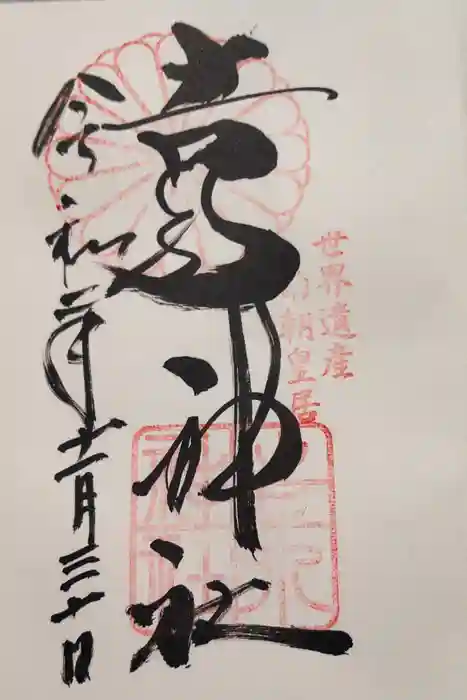 世界遺産
南朝皇居
吉水神社
令和元年十一月三十日